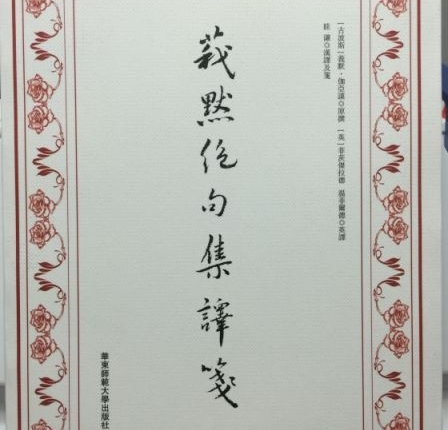 [古波斯]莪默·伽亞謨◎原撰 [英]菲茨傑拉德 温菲爾德◎英譯
眭謙◎漢譯及箋
莪默絶句集譯箋
華東師範大學出版社